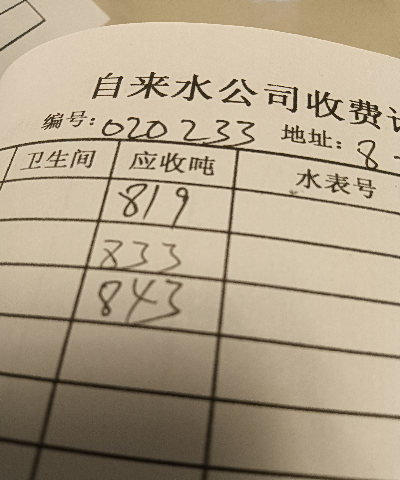 自来水公司收费
编号: 020233 地址: 8
卫生间 应收吨 水表号
819
833
843